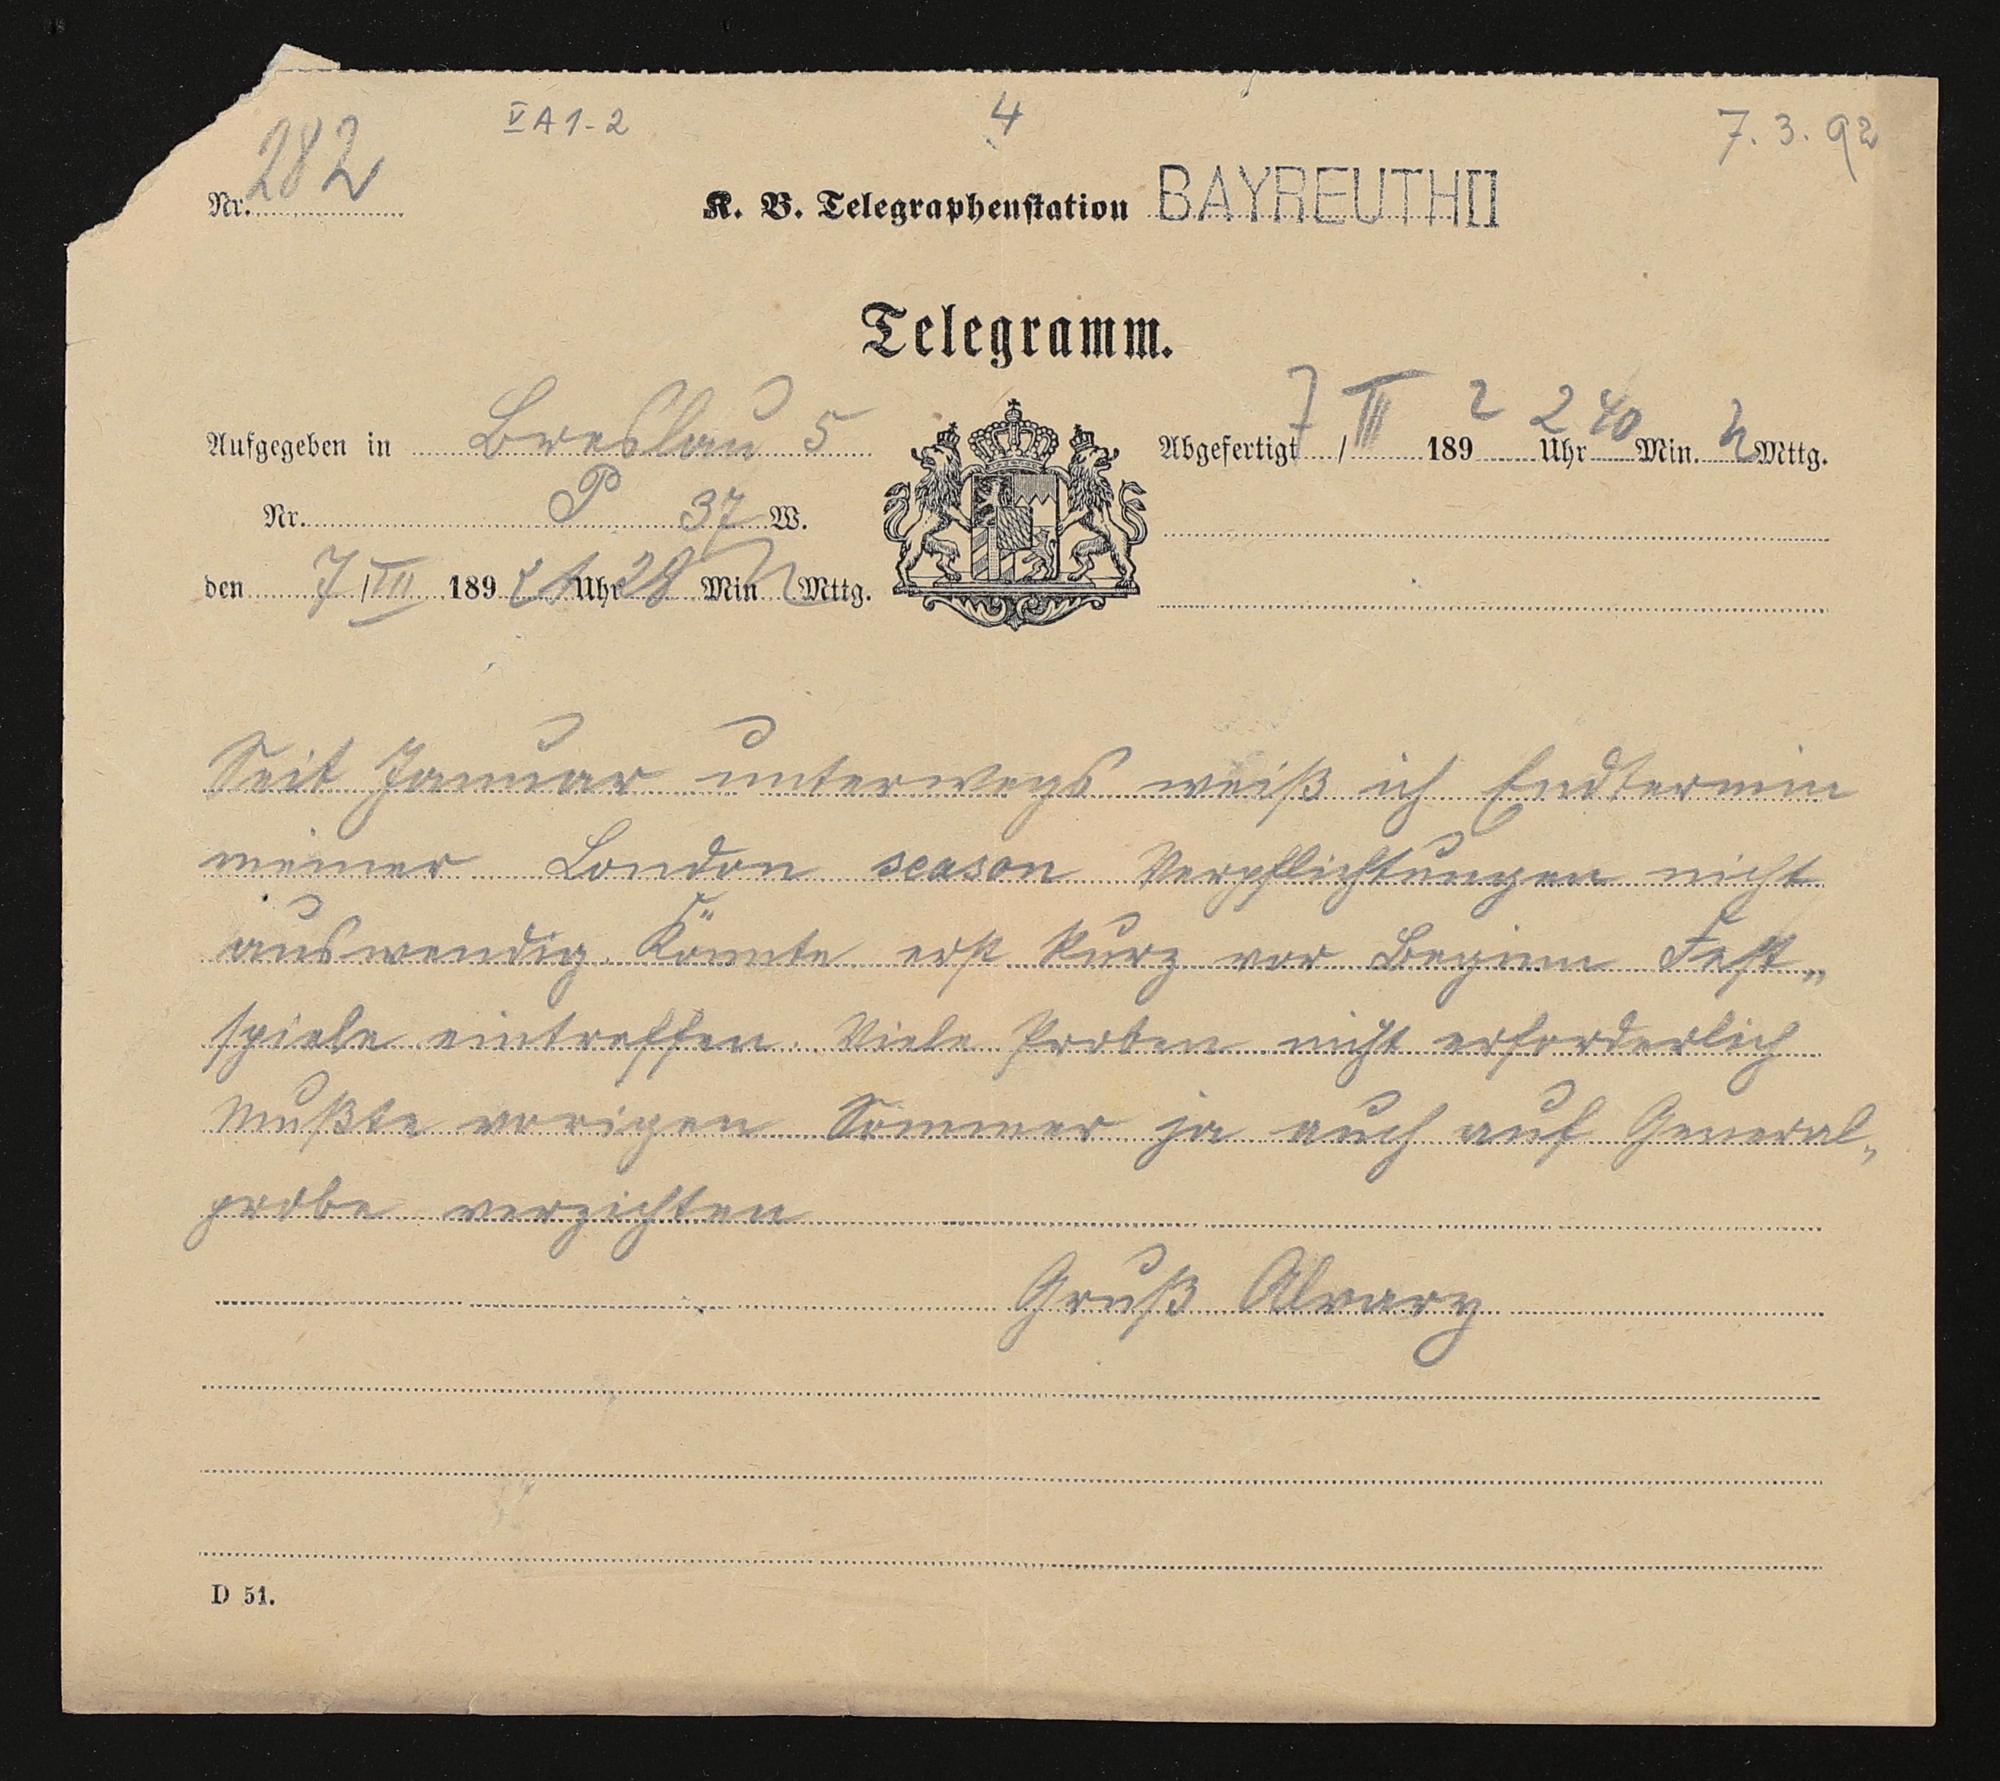 V A 1-2
4
7. 3. 92
Nr. 282
K. B. Telegraphenstation BAYREUTH II
Telegramm.
Aufgegeben in Breslau 5
Abgefertigt 7/III 1892 2 Uhr 40 Min. N Mttg.
Nr. P 37 W.
den 7/III 1892 1 Uhr 28 Min N Mttg.
Seit Januar unterwegs weiß ich Endtermin
meiner London season Verpflichtungen nicht
auswendig. Könnte erst kurz vor Beginn Fest„
spiele eintreffen. Viele Proben nicht erforderlich
Mußte vorigen Sommer ja auch auf General„
probe verzichten
Gruß Alvary
D 51.